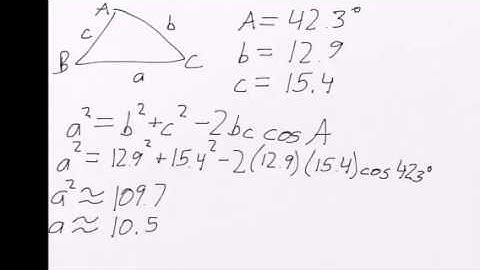 A
c b
B C
a
A = 42.3°
b = 12.9
c = 15.4
a² = b² + c² - 2bc cos A
a² = 12.9² + 15.4² - 2(12.9)(15.4) cos 42.3°
a² ≈ 109.7
a ≈ 10.5